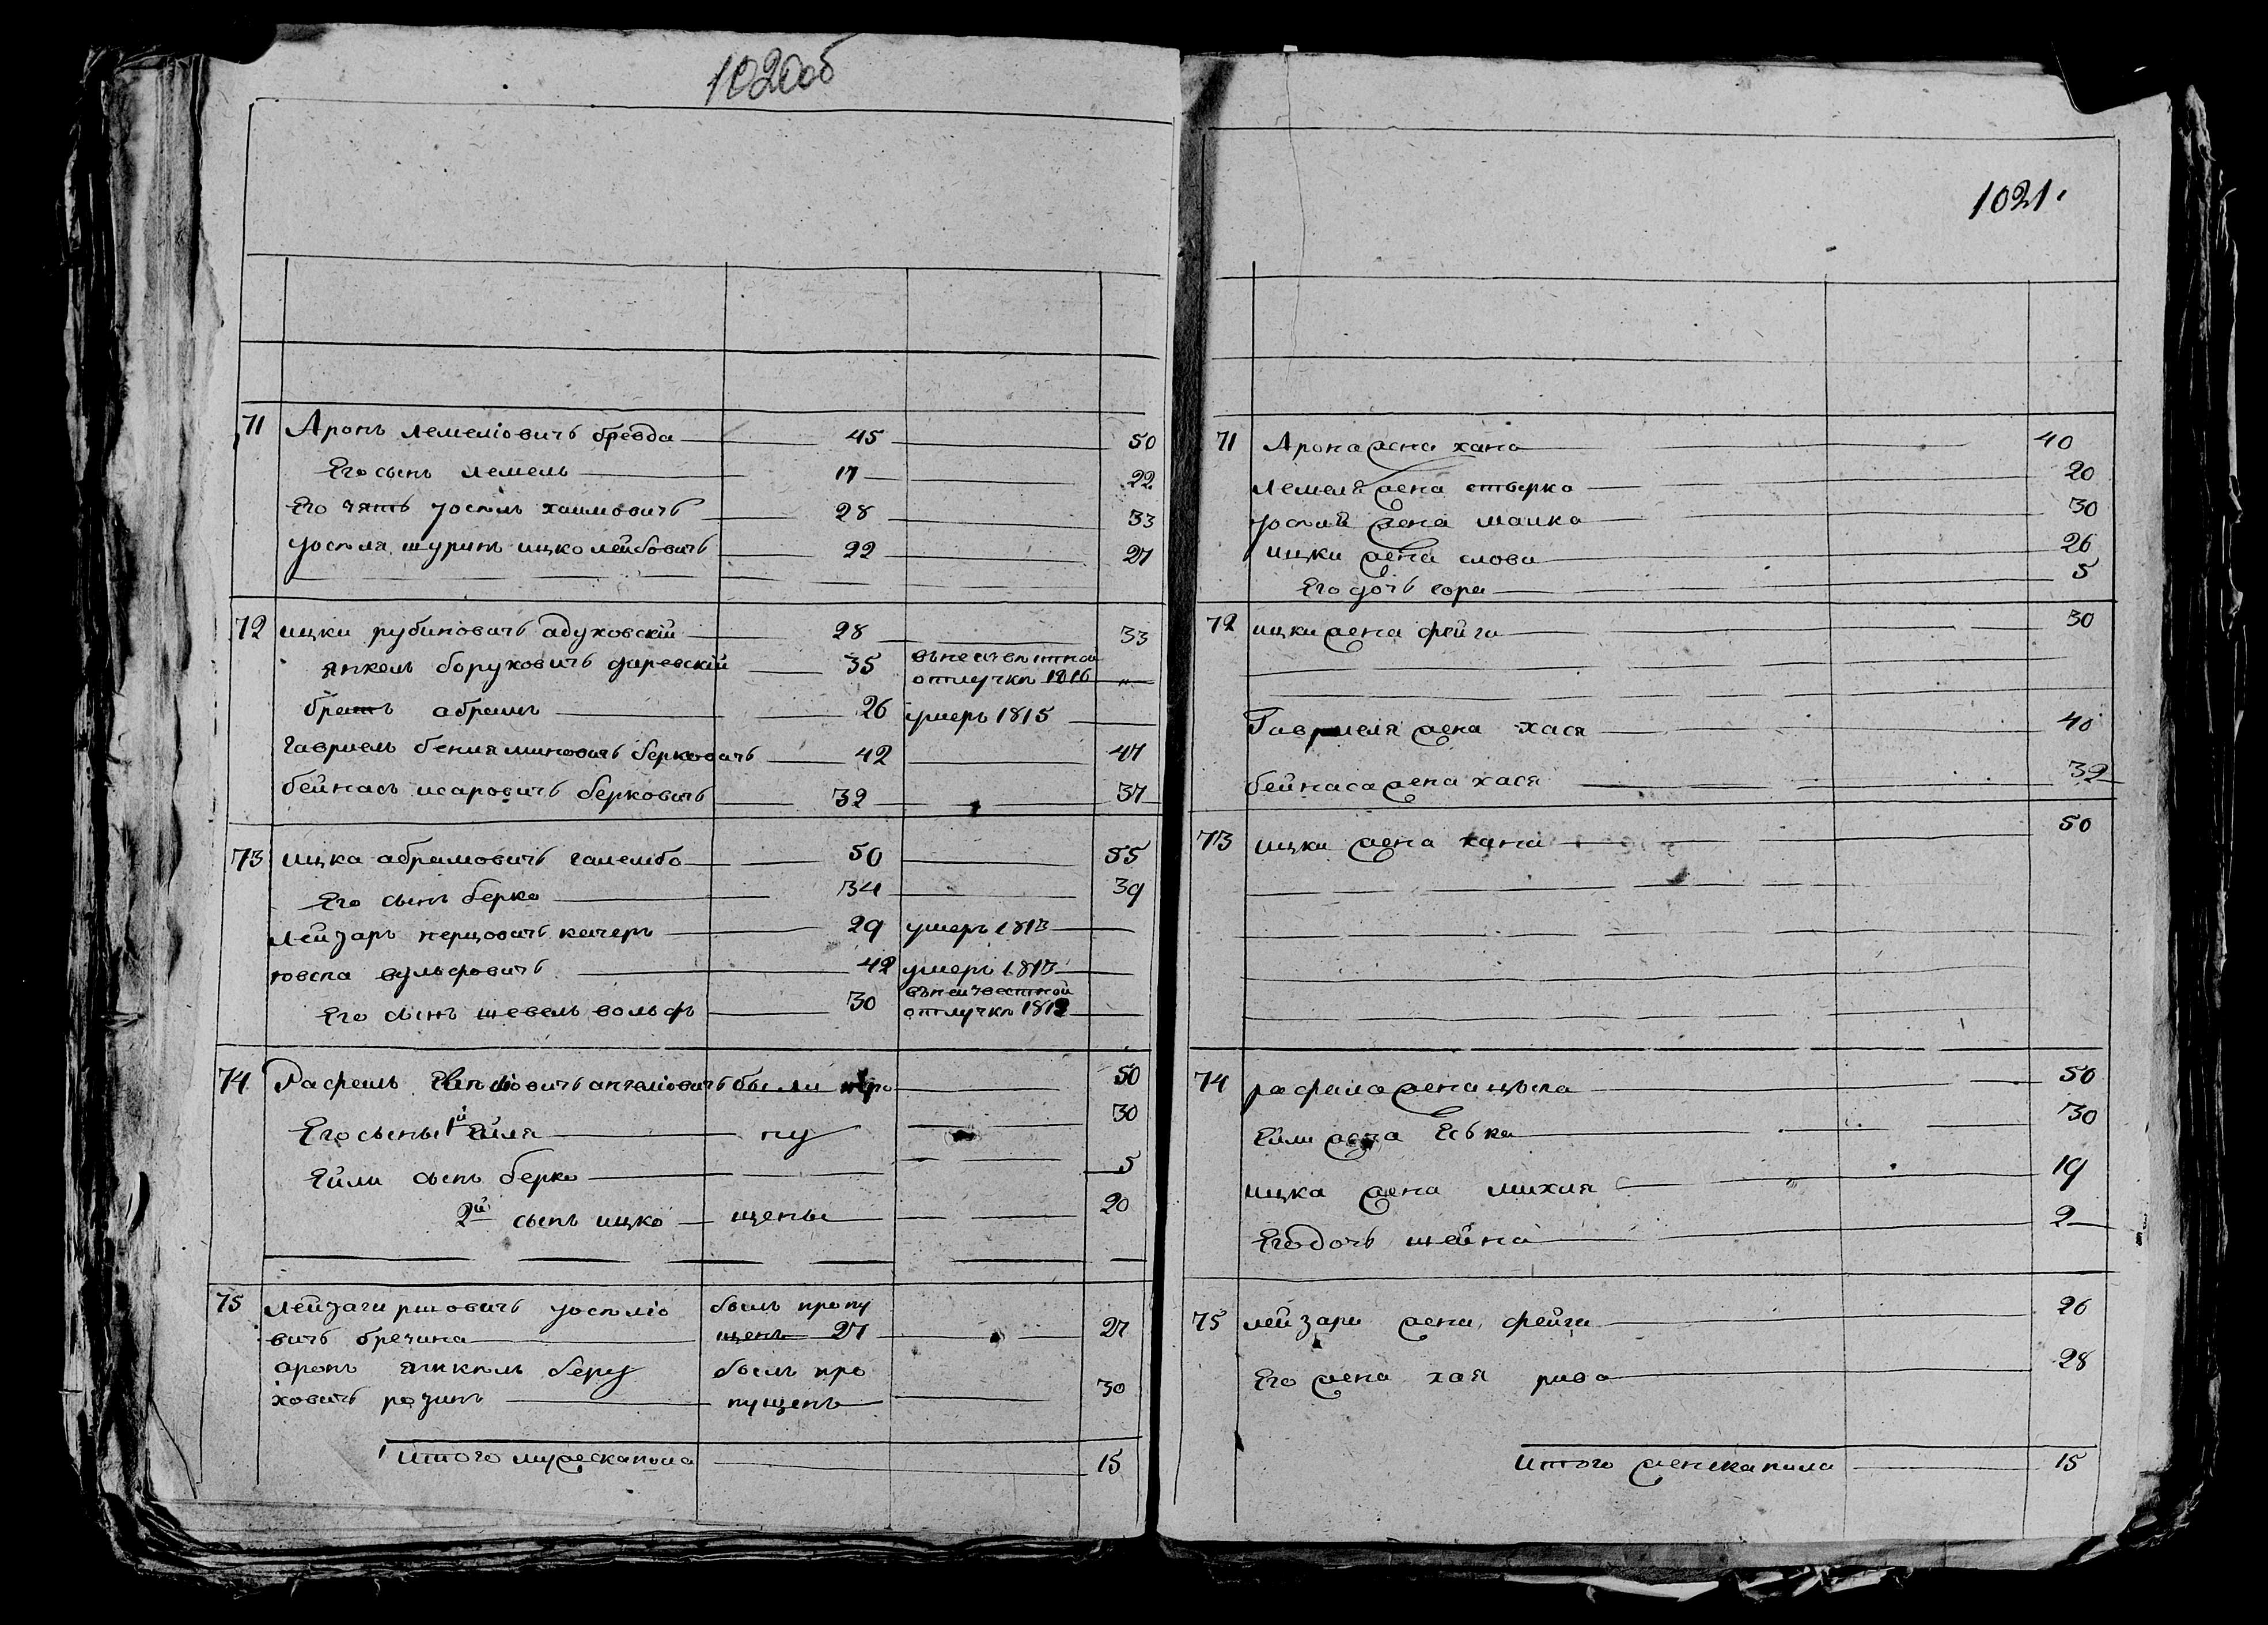 1020об
71 Аронъ лемеліовичъ бревда 45 50
Его сынъ лемель 17 22
Его зять Іосель хаимовичъ 28 33
Іоселя шуринъ ицко лейбовичъ 22 27
72 ицка рубиновичъ адуховскій 28 33
янкель боруховичъ 35 въ неизвестной
отлучке 1816 "
братъ абрамъ 26 умеръ 1815
гавриель бениаминовичъ берковичъ 42 47
бейнасъ исаровичъ берковичъ 32 37
73 ицка абрамовичъ галембо 50 55
Его сынъ берко 34 39
лейзаръ перцовичъ 29 умеръ 1813
вульфовичъ 42 умеръ 1813
Его сынъ шевель вольфъ 30 въ неизвестной
отлучке 1812
74 Рафель были про 50
Его сыны 1й Ейля пу 30
Ейли сынъ берко 5
2й сынъ ицко щены 20
75 былъ пропу
вичъ брезина щенъ 27 27
аронъ янкель беру былъ про
ховичъ розинъ пущенъ 30
Итого мужеска пола 15
1021.
71 Арона жена хана 40
лемеля жена стырка 20
жена малка 30
ицки жена слова 26
Его дочь сора 5
72 ицки жена фейга 30
Гавриеля жена хася 40
бейнаса жена хася 32
73 ицки жена хана 50
74 рафела жена 50
Ейли жена Еська 30
ицка жена михля 19
Его дочь шейна 2
75 лейзари жена фейга 26
Его жена хая рива 28
Итого женска пола 15